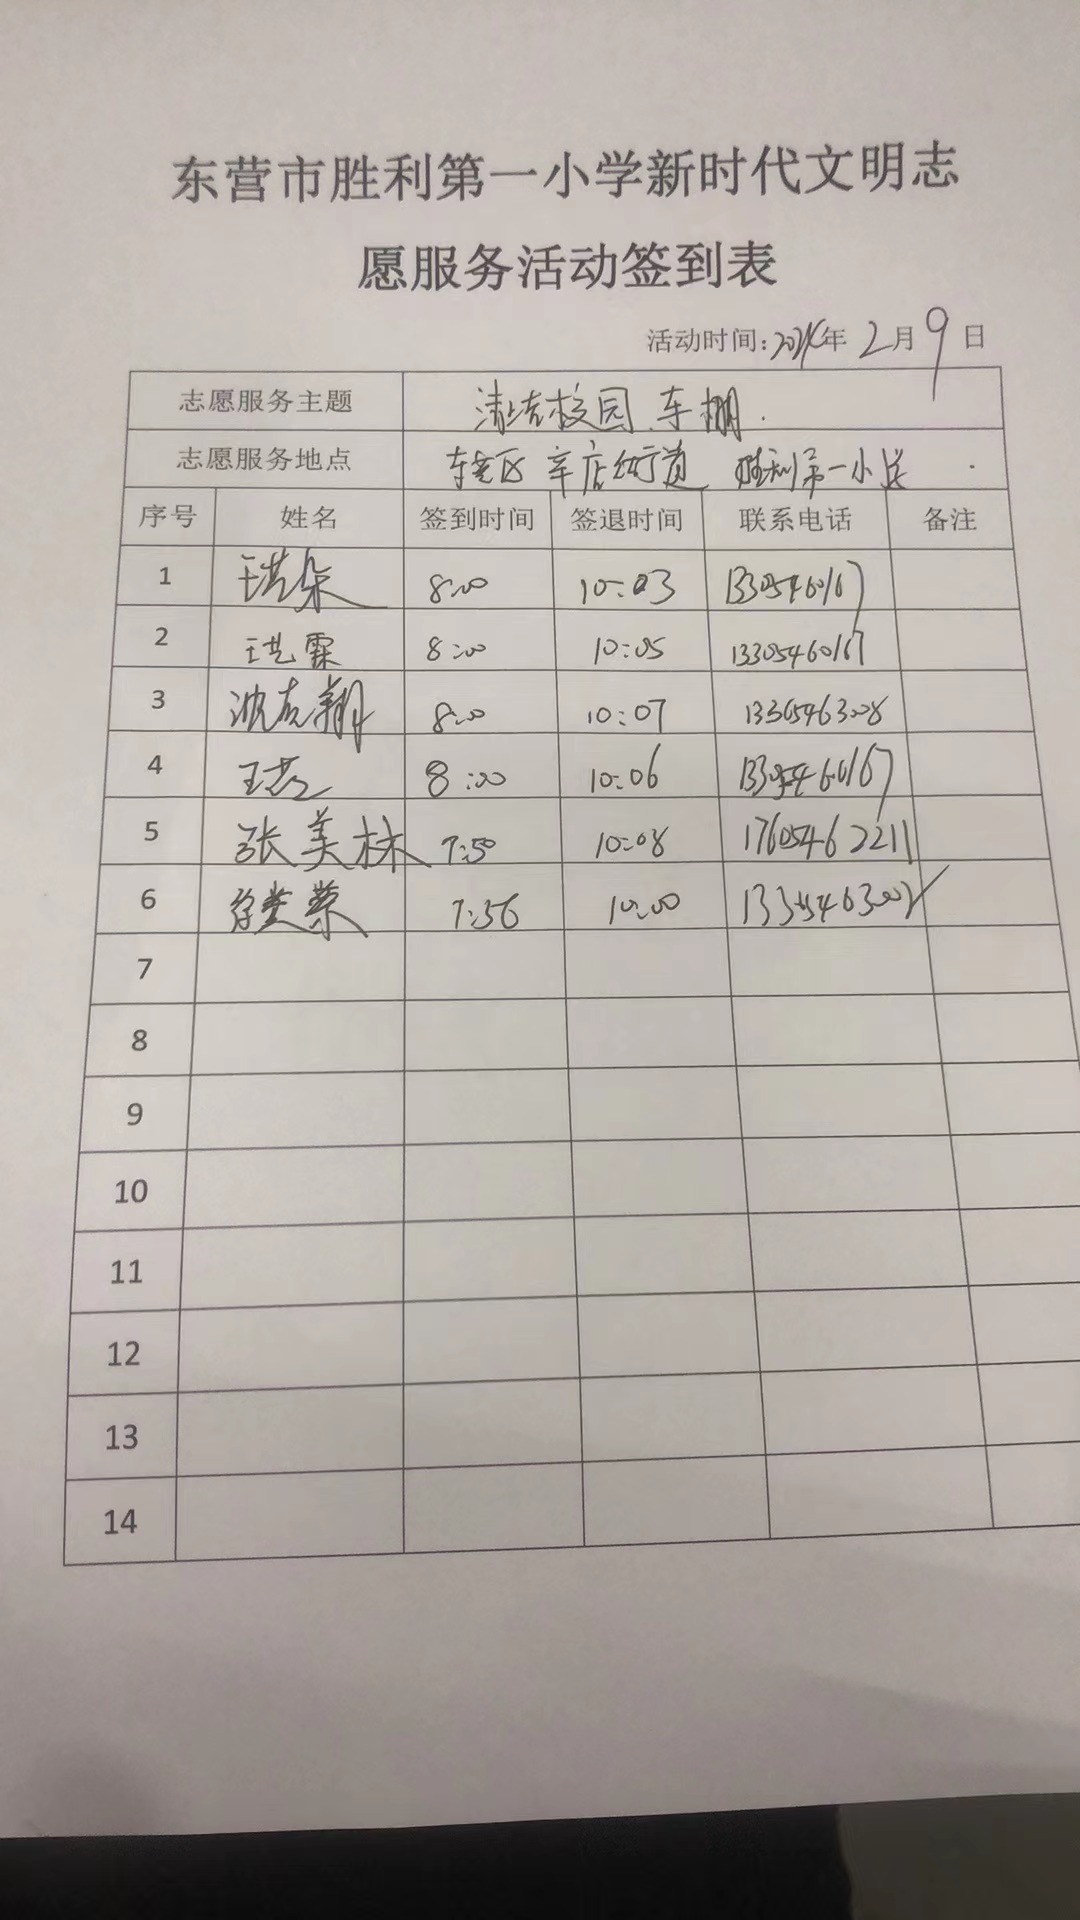 东营市胜利第一小学新时代文明志
愿服务活动签到表
活动时间: 年 2月9日
志愿服务主题 清洁校园车棚.
志愿服务地点 东营区 辛店街道 胜利第一小学
序号 姓名 签到时间 签退时间 联系电话 备注
1 8:00 10:03 13305460167
2 8:00 10:05 13305460167
3 8:00 10:07 13365463008
4 8:00 10:06 13305460167
5 张美林 7:50 10:08 17605462211
6 7:56 10:00
7
8
9
10
11
12
13
14